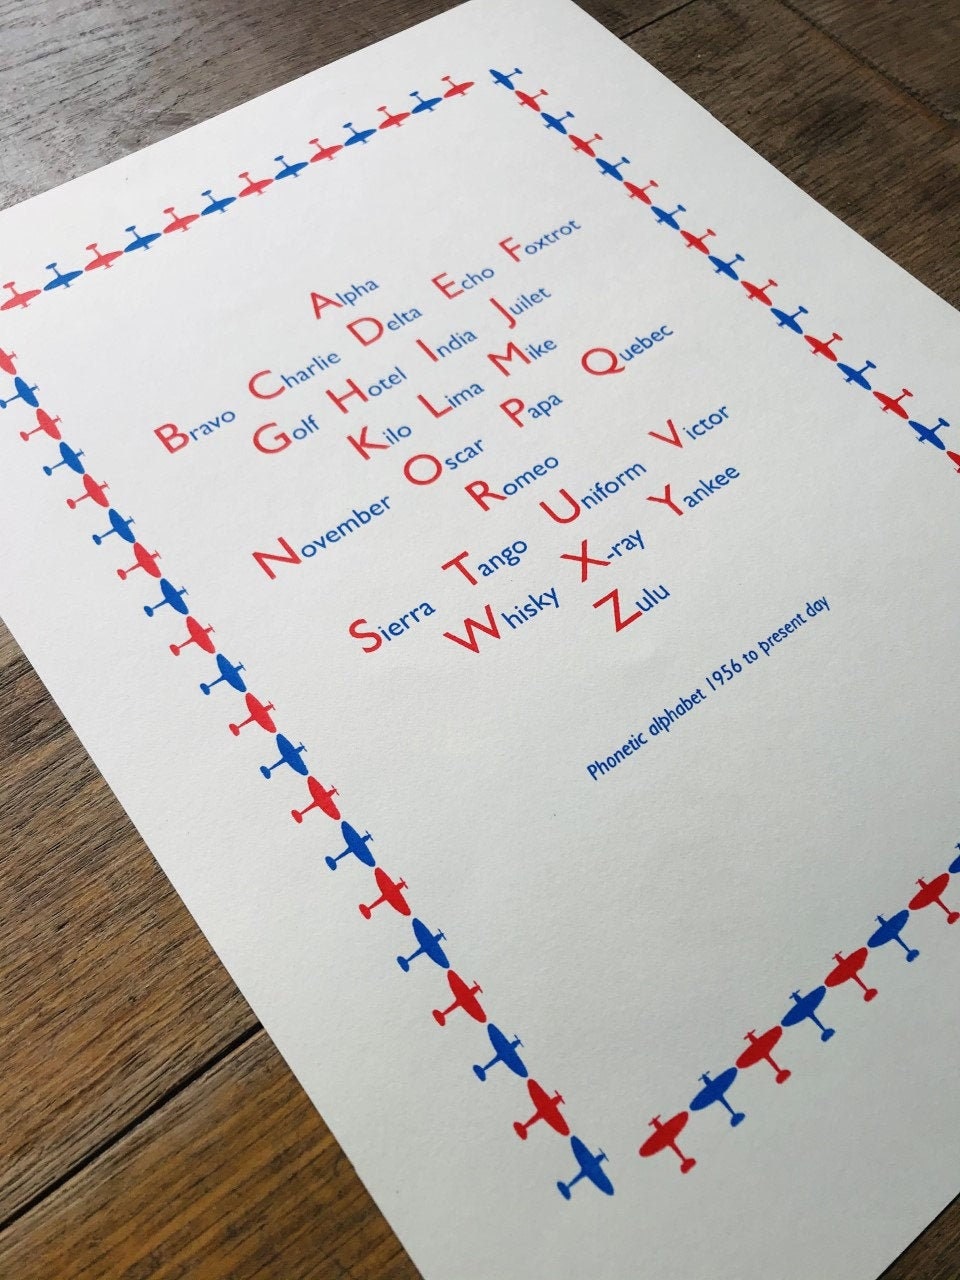 Alpha
Bravo Charlie Delta Echo Foxtrot
Golf Hotel India Juilet
Kilo Lima Mike
November Oscar Papa Quebec
Romeo
Sierra Tango Uniform Victor
Whisky X-ray Yankee
Zulu
Phonetic alphabet 1956 to present day